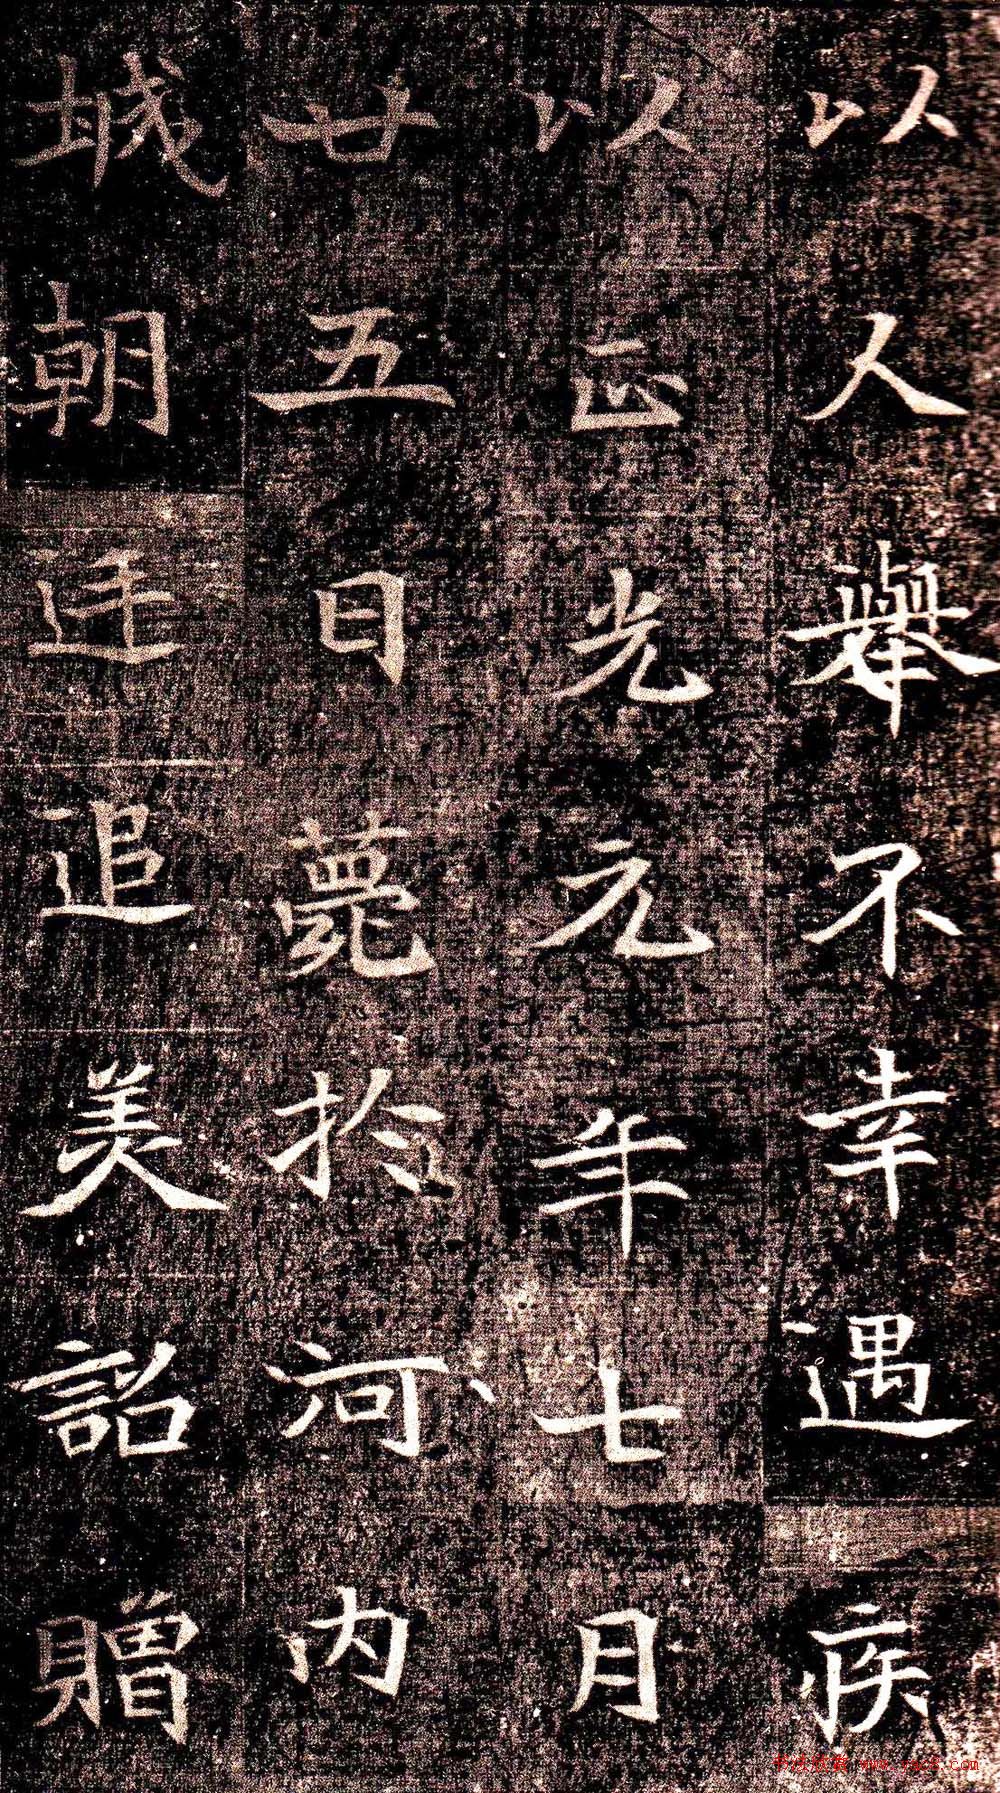 以人舉不幸遇疾
以正光元年七月
廿五日薨於河内
城朝廷追美詔贈
www.yac8.com